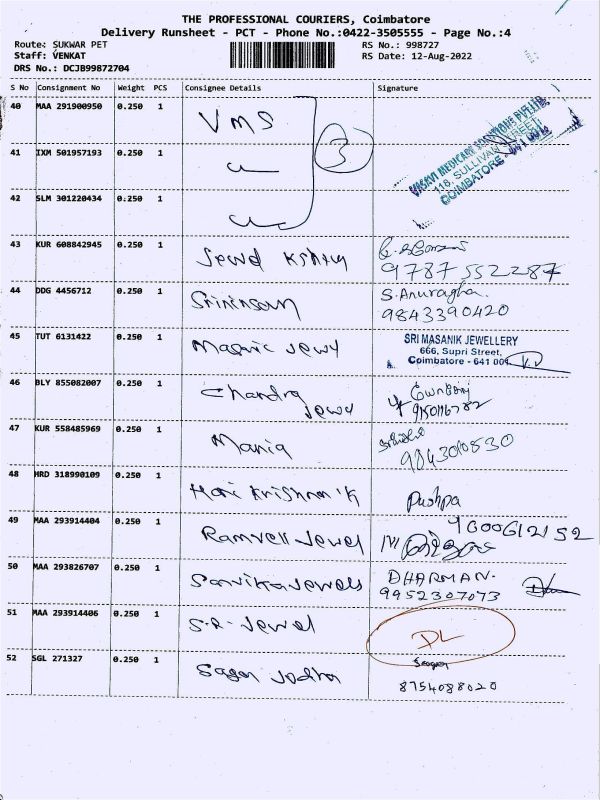 THE PROFESSIONAL COURIERS, Coimbatore
Delivery Runsheet - PCT - Phone No.:0422-3505555 - Page No.:4
Route: SUKWAR PET
RS No.: 998727
Staff: VENKAT
RS Date: 12-Aug-2022
DRS No.: DCJB99872704
S No Consignment No Weight PCS Consignee Details Signature
40 MAA 291900950 0.250 1 VMS
3
VASAVI MEDICARE SOLUTIONS PVT LTD
118, SULLIVAN STREET,
COIMBATORE - 641 001
41 IXM 501957193 0.250 1
42 SLM 301220434 0.250 1
43 KUR 608842945 0.250 1 Jewel
9787552287
44 DDG 4456712 0.250 1 S.Anuragha.
9843390420
45 TUT 6131422 0.250 1 Jewel
SRI MASANIK JEWELLERY
666, Supri Street,
Coimbatore - 641 001
46 BLY 855082007 0.250 1 Chandra
Jewel
47 KUR 558485969 0.250 1 Mania
48 HRD 318990109 0.250 1 Hari Krishna K Pushpa
9600612152
49 MAA 293914404 0.250 1 Jewel
50 MAA 293826707 0.250 1 Sarvika Jewels DHARMAN.
9952307073
51 MAA 293914406 0.250 1 S.R. Jewel DL
52 SGL 271327 0.250 1 Sagar Jodha Sagar
8754088020